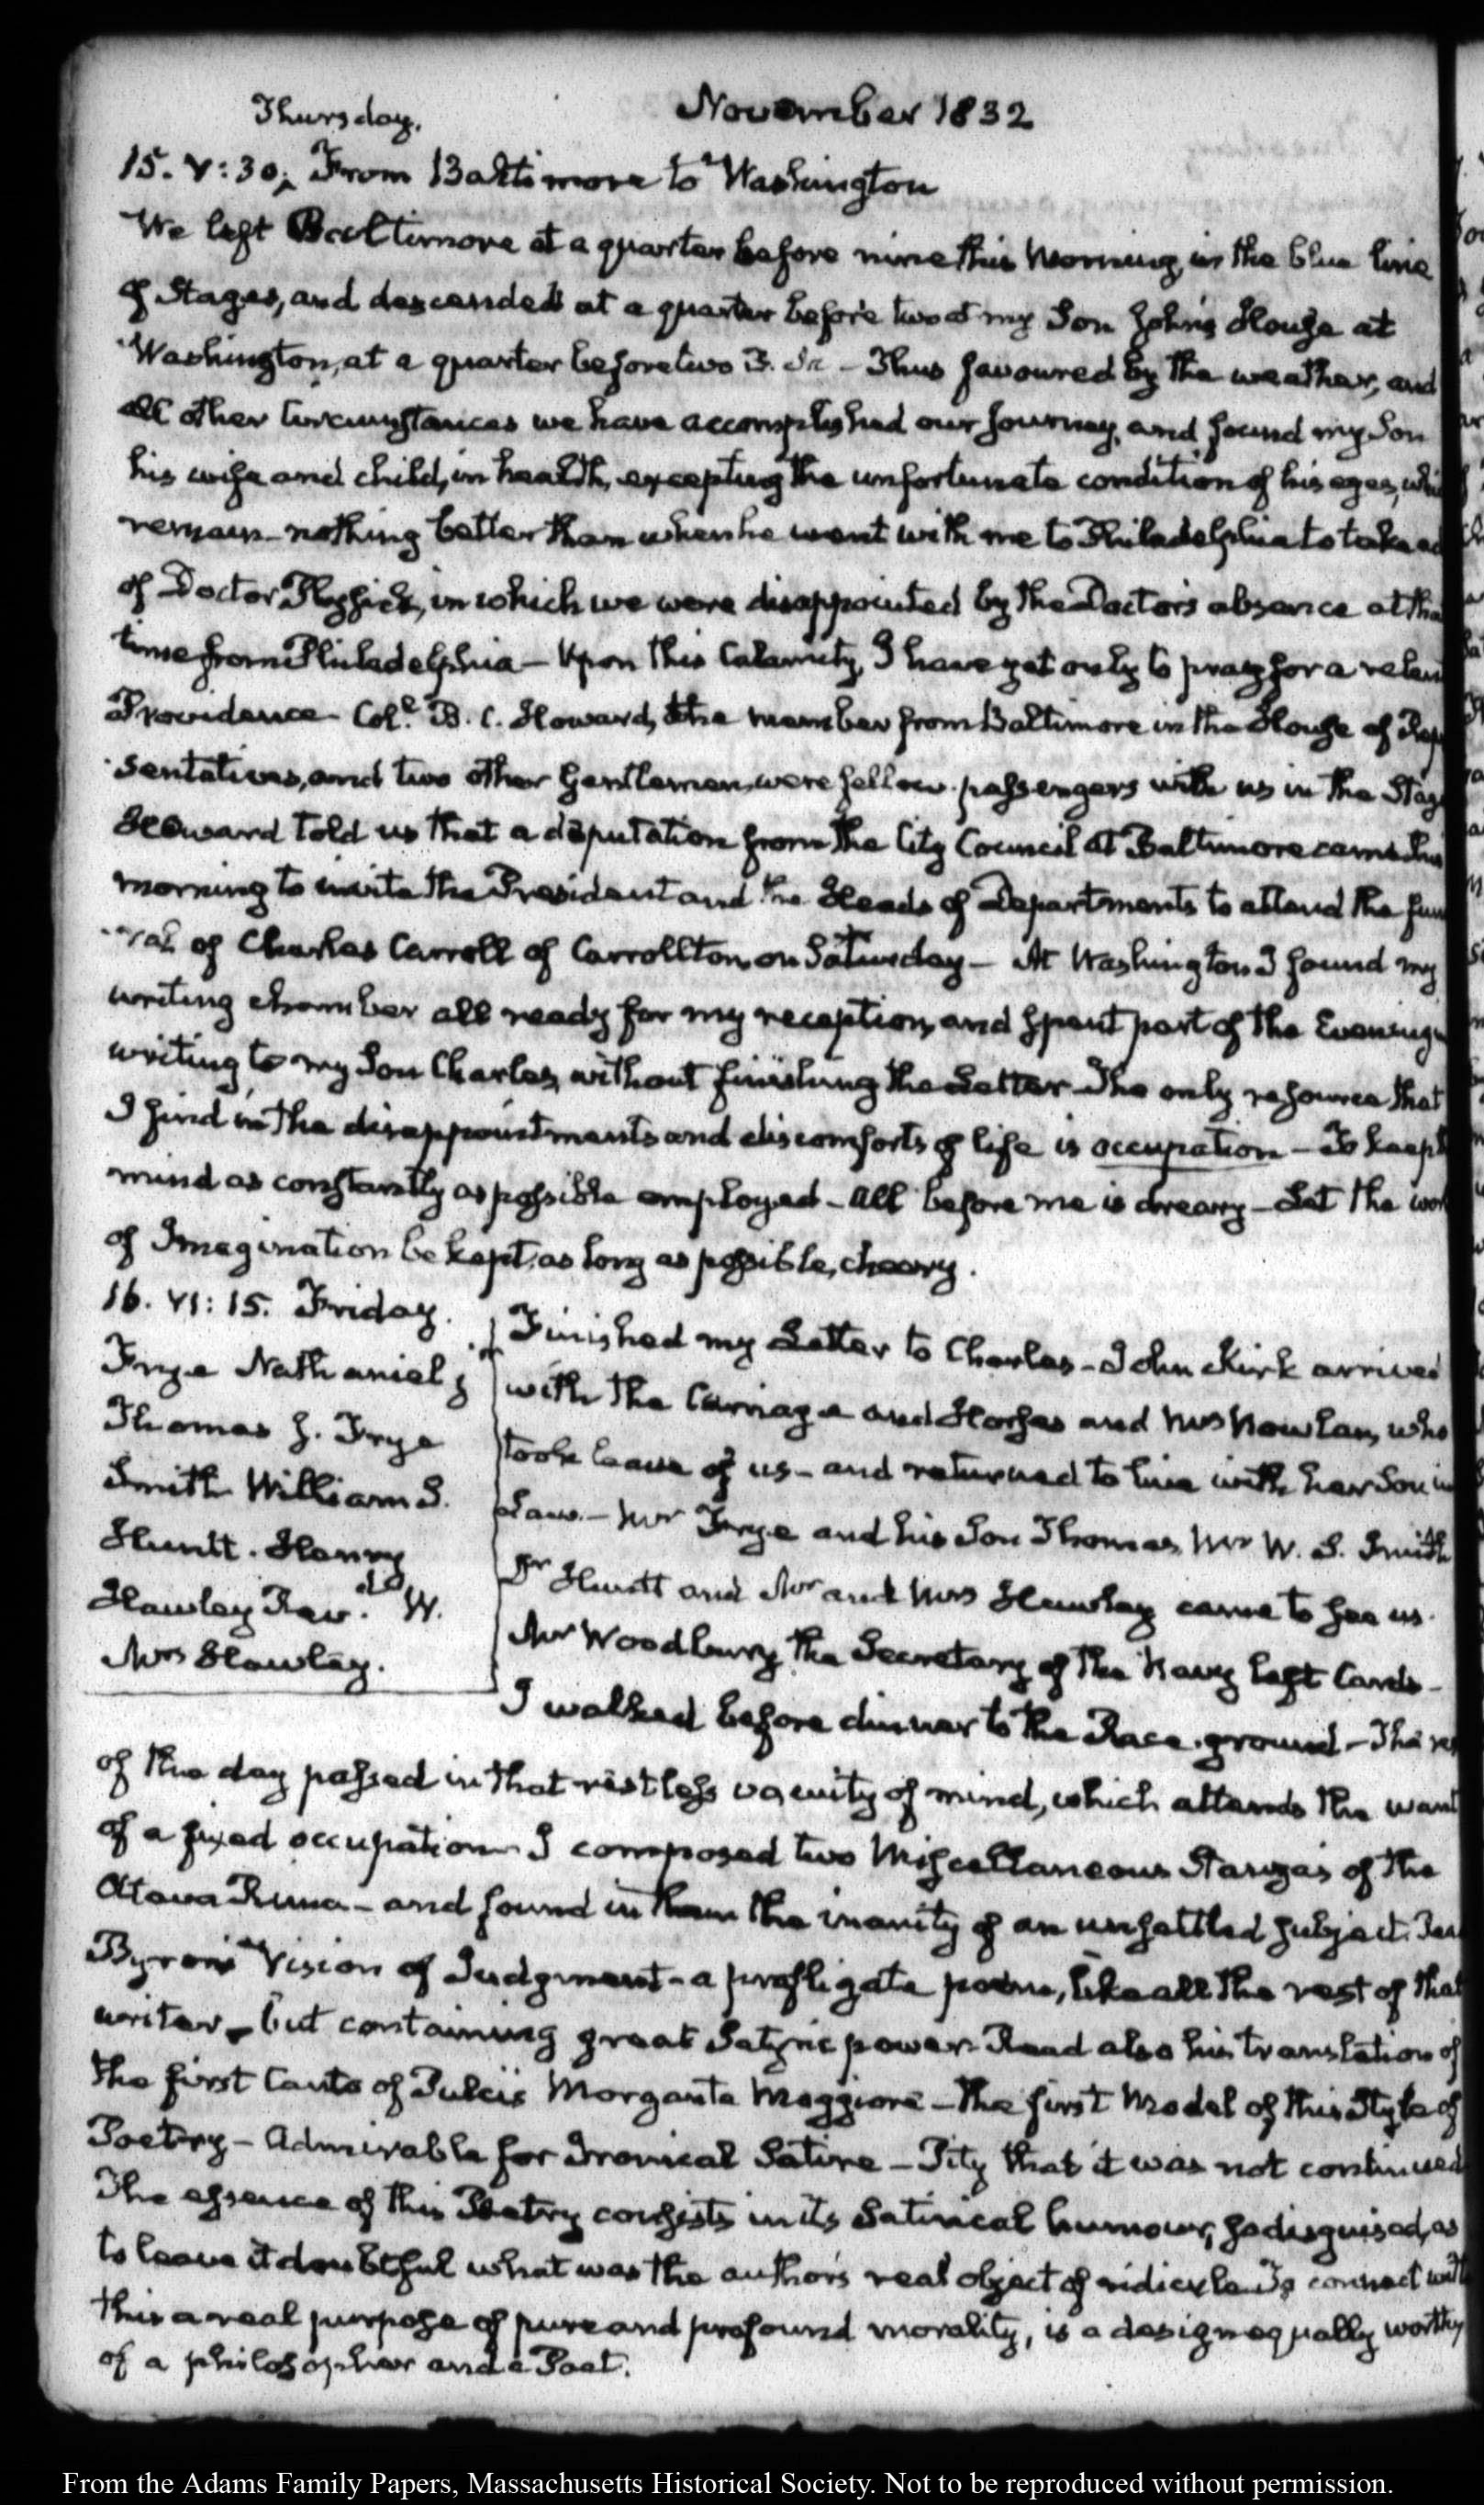 November 1832
Thursday.
15. V:30. From Baltimore to Washington
We left Baltimore at a quarter before nine this Morning, in the blue line
of Stages, and descended at a quarter before two at my Son John's House at
Washington, at a quarter before two — Thus favoured by the weather, and
all other Circumstances we have accomplished our Journey, and found my Son
his wife and child, in health, excepting the unfortunate condition of his eyes, whi
remain nothing better than when he went with me to Philadelphia to take ad
of Doctor Physick, in which we were disappointed by the Doctor's absence at tha
time from Philadelphia — Upon this Calamity, I have yet only to pray for a relen
Providence. Coll. B. C. Howard, the member from Baltimore in the House of Rep
sentatives, and two other Gentlemen, were fellow-passengers with us in the Stag
Howard told us that a deputation from the City Council at Baltimore came this
morning to invite the President and the Heads of Departments to attend the fun
ral of Charles Carroll of Carrollton, on Saturday — At Washington I found my
writing chamber all ready for my reception, and spent part of the Evening
writing to my Son Charles, without finishing the Letter — The only resource that
I find in the disappointments and discomforts of life is occupation — To keep
mind as constantly as possible employed — All before me is dreary — Let the wor
of Imagination be kept, as long as possible, cheery.
16. VI:15. Friday.
Frye Nathaniel
Thomas J. Frye
Smith William S.
Huntt. Henry
Hawley Revd. W.
Mrs Hawley.
Finished my Letter to Charles — John Kirk arrived
with the Carriage and Horses and Mrs Nowlan, who
took leave of us — and returned to live with her Son in
Law. — Mr Frye and his Son Thomas, Mr W. S. Smith
Dr Huntt and Mr and Mrs Hawley came to see us.
Mr Woodbury the Secretary of the Navy left Cards —
I walked before dinner to the Race-ground. — The res
of the day passed in that restless vacuity of mind, which attends the want
of a fixed occupation — I composed two Miscellaneous Stanzas of the
Ottava Rima — and found in them the inanity of an unsettled subject. Rea
Byron's Vision of Judgment — a profligate poem, like all the rest of that
writer — but containing great Satyric power. Read also his translation of
the first Canto of Pulci's Morgante Maggiore — the first Model of this Style of
Poetry — Admirable for Ironical Satire — Pity that it was not continued
The essence of this Poetry consists in its Satirical humour, so disguised, as
to leave it doubtful what was the author's real object of ridicule. To connect with
this a real purpose of pure and profound morality, is a design equally worthy
of a philosopher and a Poet.
From the Adams Family Papers, Massachusetts Historical Society. Not to be reproduced without permission.